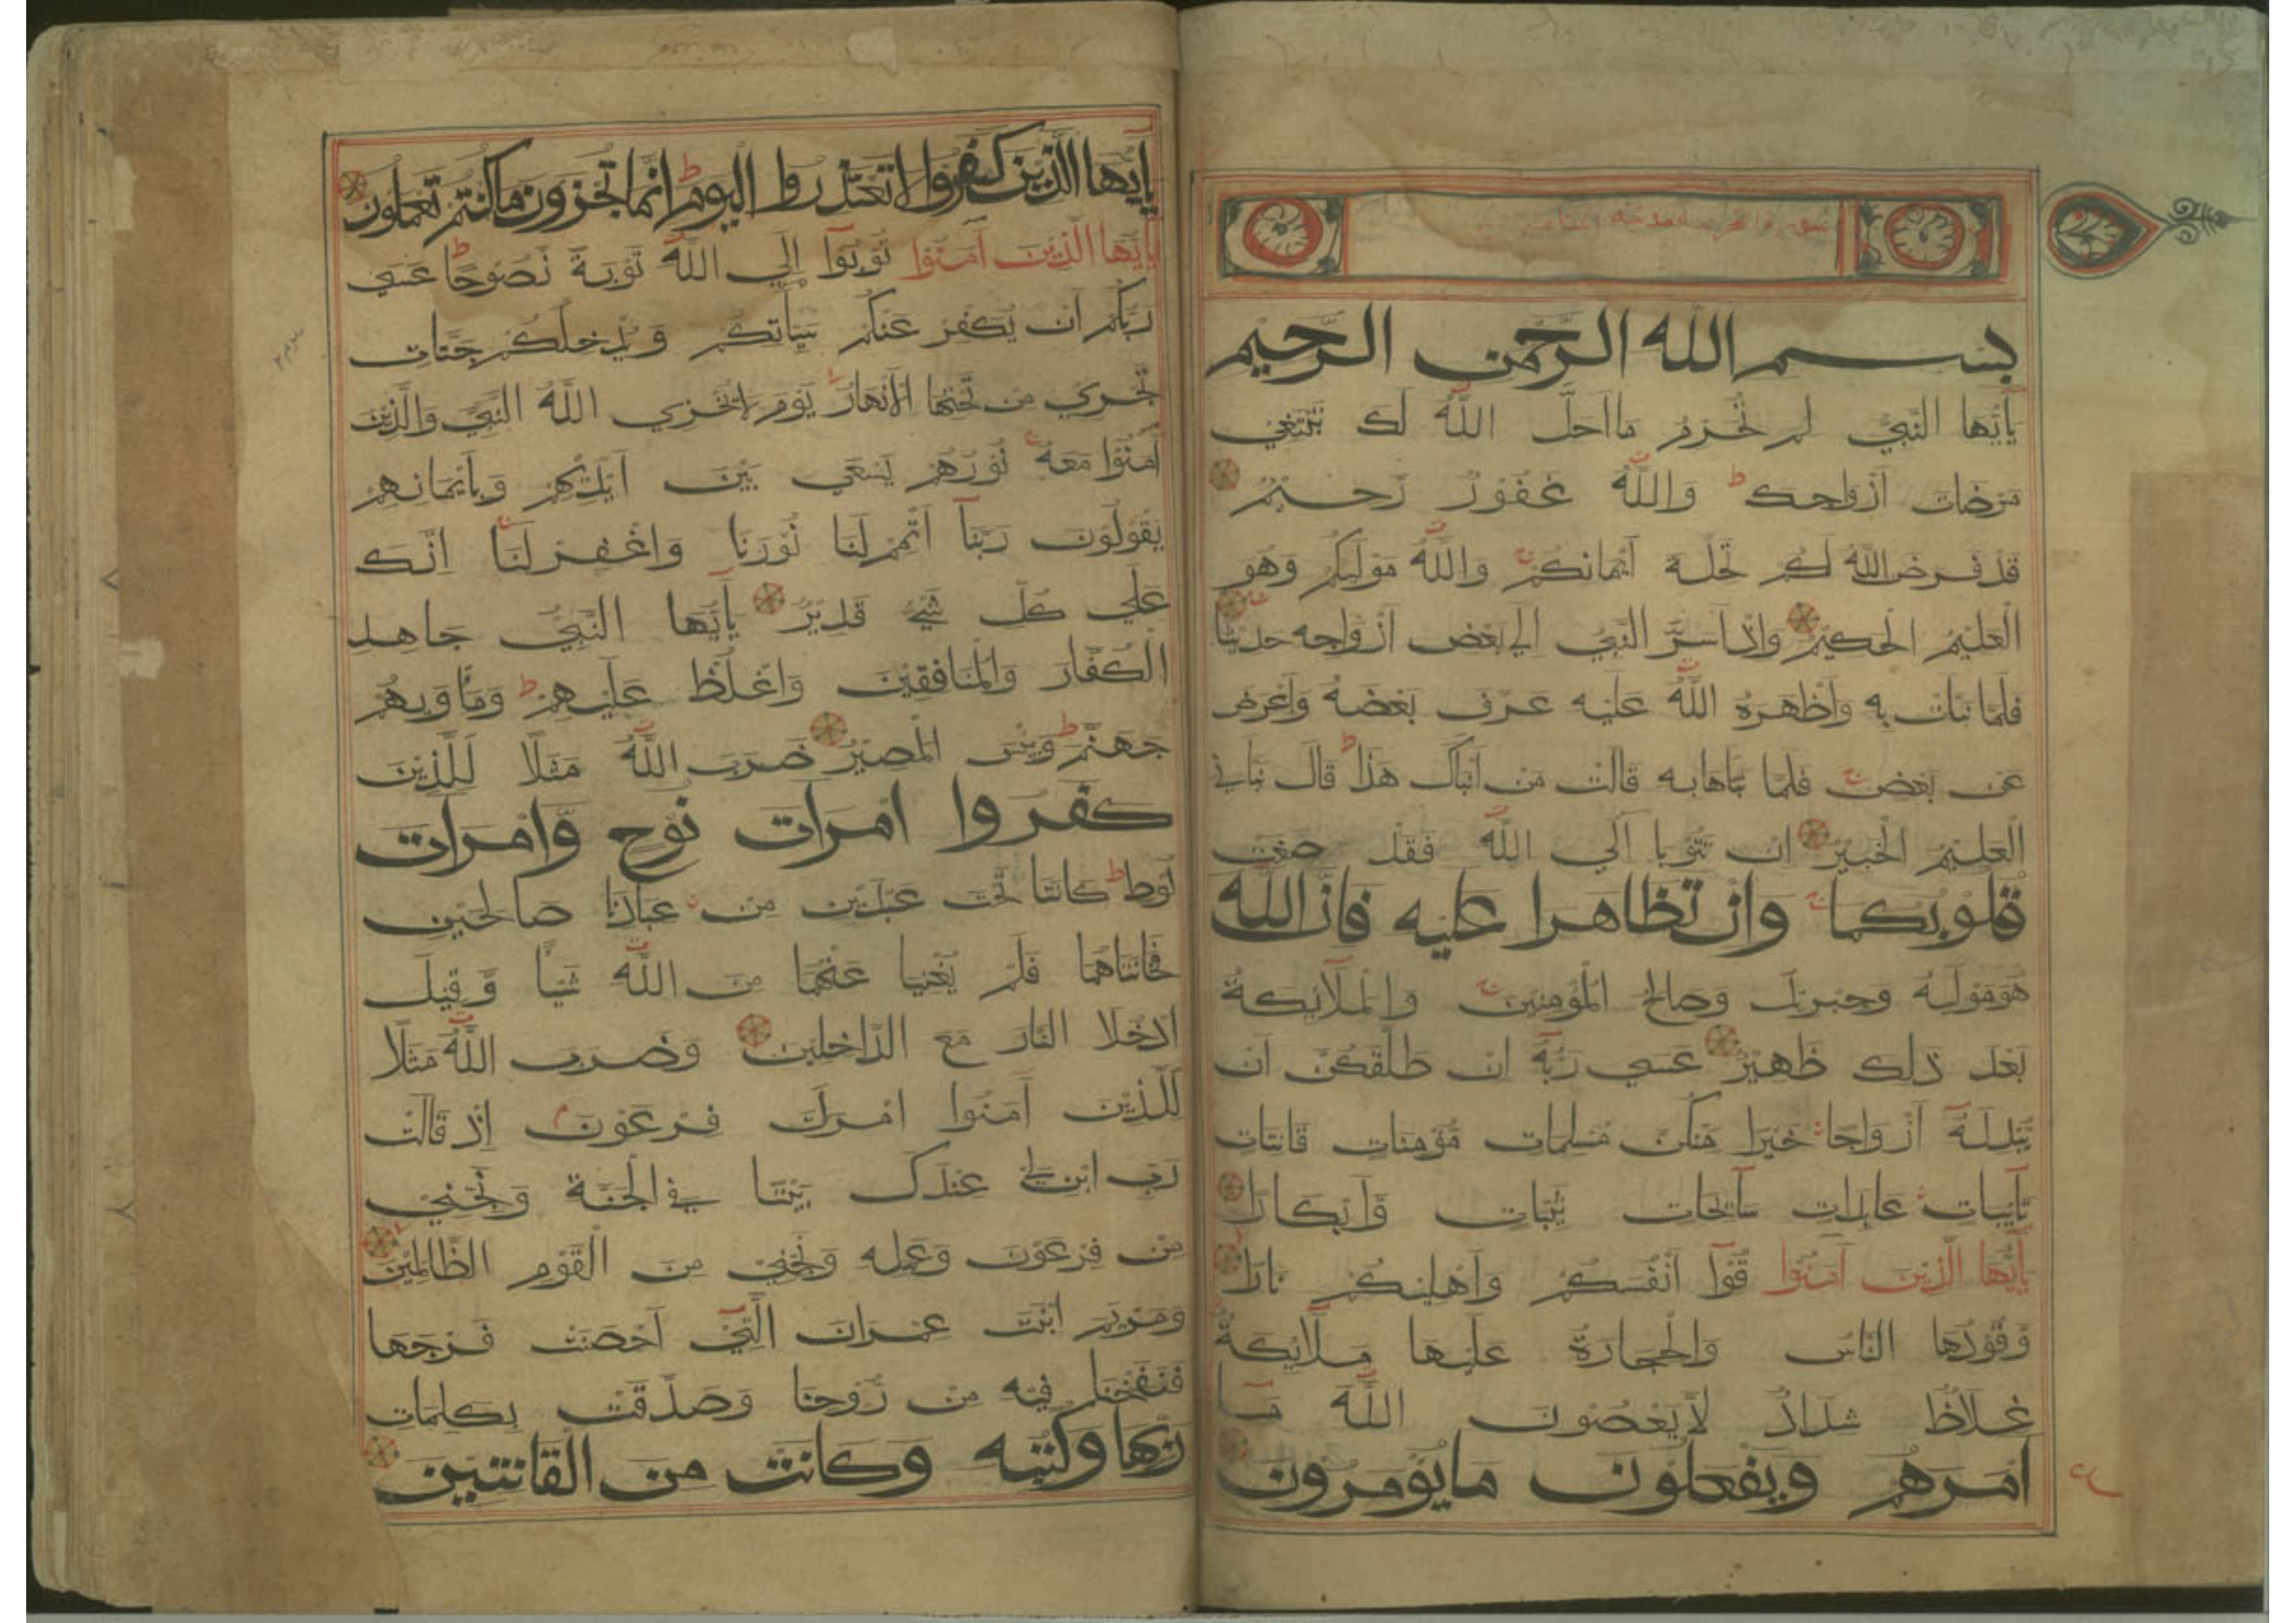 بسم الله الرحمن الرحيم
يٰأَيُّهَا النَّبِيُّ لِمَ تُحَرِّمُ مَا اَحَلَّ اللّٰهُ لَكَ تَبْتَغِي
مَرْضَات اَزْوَاجِكَ ط وَاللّٰهُ غَفُوْرٌ رَّحِيْمٌ
قَدْ فَرَضَ اللّٰهُ لَكُمْ تَحِلَّةَ اَيْمَانِكُمْ ج وَاللّٰهُ مَوْلٰيكُمْ وَهُوَ
الْعَلِيْمُ الْحَكِيْمُ وَاِذْ اَسَرَّ النَّبِيُّ اِلٰي بَعْضِ اَزْوَاجِهِ حَدِيْثًا
فَلَمَّا نَبَّاَتْ بِهِ وَاَظْهَرَهُ اللّٰهُ عَلَيْهِ عَرَّفَ بَعْضَهُ وَاَعْرَضَ
عَنْ بَعْضٍ ج فَلَمَّا نَبَّاَهَا بِهِ قَالَتْ مَنْ اَنْبَاَكَ هٰذَا ط قَالَ نَبَّاَنِيَ
الْعَلِيْمُ الْخَبِيْرُ اِنْ تَتُوْبَا اِلَي اللّٰهِ فَقَدْ صَغَتْ
قلوبكما ج وان تظاهرا عليه فان الله
هُوَ مَوْلٰيهُ وَجِبْرِيْلُ وَصَالِحُ الْمُؤْمِنِيْنَ ج وَالْمَلَآئِكَةُ
بَعْدَ ذٰلِكَ ظَهِيْرٌ عَسٰي رَبُّهُ اِنْ طَلَّقَكُنَّ اَنْ
يُّبْدِلَهُ اَزْوَاجًا خَيْرًا مِّنْكُنَّ مُسْلِمَاتٍ مُّؤْمِنَاتٍ قَانِتَاتٍ
تَآئِبَاتٍ عَابِدَاتٍ سَآئِحَاتٍ ثَيِّبَاتٍ وَّاَبْكَارًا
يٰأَيُّهَا الَّذِيْنَ اٰمَنُوْا قُوْا اَنْفُسَكُمْ وَاَهْلِيْكُمْ نَارًا
وَّقُوْدُهَا النَّاسُ وَالْحِجَارَةُ عَلَيْهَا مَلَآئِكَةٌ
غِلَاظٌ شِدَادٌ لَّا يَعْصُوْنَ اللّٰهَ مَآ
امرهم ويفعلون ما يؤمرون
ع
يٰأَيُّهَا الَّذِيْنَ كَفَرُوْا لَا تَعْتَذِرُوا الْيَوْمَ ط اِنَّمَا تُجْزَوْنَ مَا كُنْتُمْ تَعْمَلُوْنَ
يٰأَيُّهَا الَّذِيْنَ اٰمَنُوْا تُوْبُوْا اِلَي اللّٰهِ تَوْبَةً نَّصُوْحًا ط عَسٰي
رَبُّكُمْ اَنْ يُّكَفِّرَ عَنْكُمْ سَيِّاٰتِكُمْ وَيُدْخِلَكُمْ جَنَّاتٍ
تَجْرِيْ مِنْ تَحْتِهَا الْاَنْهَارُ يَوْمَ لَا يُخْزِي اللّٰهُ النَّبِيَّ وَالَّذِيْنَ
اٰمَنُوْا مَعَهُ ج نُوْرُهُمْ يَسْعٰي بَيْنَ اَيْدِيْهِمْ وَبِاَيْمَانِهِمْ
يَقُوْلُوْنَ رَبَّنَآ اَتْمِمْ لَنَا نُوْرَنَا وَاغْفِرْ لَنَا ج اِنَّكَ
عَلٰي كُلِّ شَيْءٍ قَدِيْرٌ يٰأَيُّهَا النَّبِيُّ جَاهِدِ
الْكُفَّارَ وَالْمُنَافِقِيْنَ وَاغْلُظْ عَلَيْهِمْ ط وَمَاْوٰيهُمْ
جَهَنَّمُ ط وَبِئْسَ الْمَصِيْرُ ضَرَبَ اللّٰهُ مَثَلًا لِّلَّذِيْنَ
كفروا امرات نوح وامرات
لُوْطٍ ط كَانَتَا تَحْتَ عَبْدَيْنِ مِنْ عِبَادِنَا صَالِحَيْنِ
فَخَانَتَاهُمَا فَلَمْ يُغْنِيَا عَنْهُمَا مِنَ اللّٰهِ شَيْئًا وَّقِيْلَ
ادْخُلَا النَّارَ مَعَ الدَّاخِلِيْنَ وَضَرَبَ اللّٰهُ مَثَلًا
لِّلَّذِيْنَ اٰمَنُوا امْرَاَتَ فِرْعَوْنَ م اِذْ قَالَتْ
رَبِّ ابْنِ لِيْ عِنْدَكَ بَيْتًا فِي الْجَنَّةِ وَنَجِّنِيْ
مِنْ فِرْعَوْنَ وَعَمَلِهِ وَنَجِّنِيْ مِنَ الْقَوْمِ الظَّالِمِيْنَ
وَمَرْيَمَ ابْنَتَ عِمْرَانَ الَّتِيْ اَحْصَنَتْ فَرْجَهَا
فَنَفَخْنَا فِيْهِ مِنْ رُّوْحِنَا وَصَدَّقَتْ بِكَلِمَاتِ
ربها وكتبه وكانت من القانتين